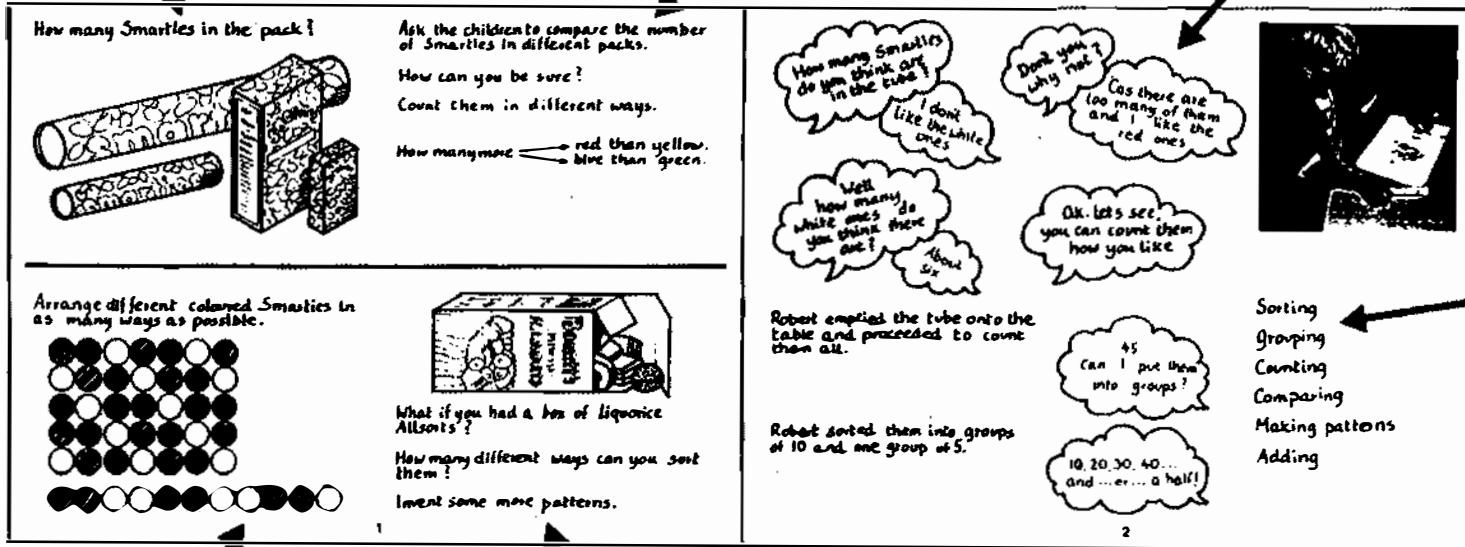 How many Smarties in the pack?
Ask the children to compare the number
of Smarties in different packs.
How can you be sure?
Count them in different ways.
How many more
red than yellow.
blue than green.
Arrange different coloured Smarties in
as many ways as possible.
What if you had a box of Liquorice
Allsorts?
How many different ways can you sort
them?
Invent some more patterns.
1
How many Smarties
do you think are
in the tube?
I dont
like the white
ones
Dont you
why not?
Cos there are
too many of them
and I like the
red ones
Well
how many
white ones do
you think there
are?
About
six
O.K. lets see,
you can count them
how you like
Robert emptied the tube onto the
table and proceeded to count
them all.
45
Can I put them
into groups?
Robert sorted them into groups
of 10 and one group of 5.
10, 20, 30, 40...
and ...er... a half!
Sorting
grouping
Counting
Comparing
Making patterns
Adding
2